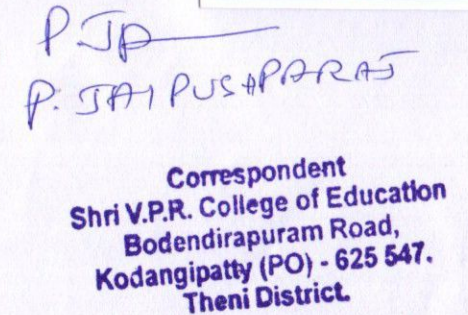 P Jp
P. JAI PUSHPARAJ
Correspondent
Shri V.P.R. College of Education
Bodendirapuram Road,
Kodangipatty (PO) - 625 547.
Theni District.